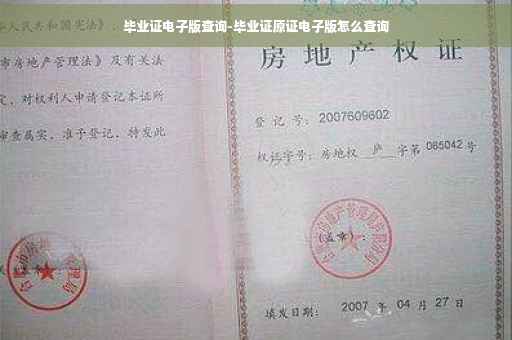 毕业证电子版查询-毕业证原证电子版怎么查询
人民共和国宪法》
市房地产管理法》及有关法
定，对权利人申请登记本证所
审查属实，准予登记，特发此
房地产权证
登记号：2007609602
权证字号：房地权 庐 字第 065042 号
（盖章）：
填发日期：2007 年 04 月 27 日